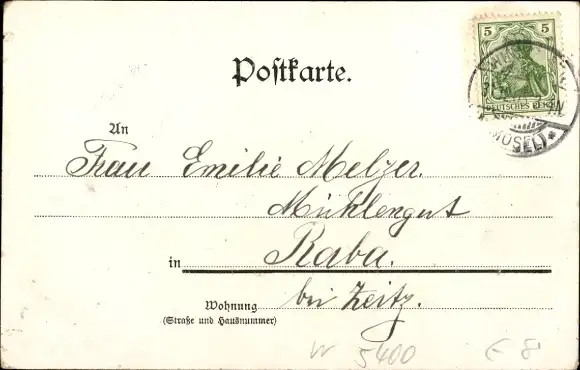 5 5
DEUTSCHES REICH
(MOSEL) *
Postkarte.
An
Frau Emilie Melzer.
Mühlengut
in Raba.
bei Zeitz.
Wohnung
(Straße und Hausnummer)
W 5400 E 8